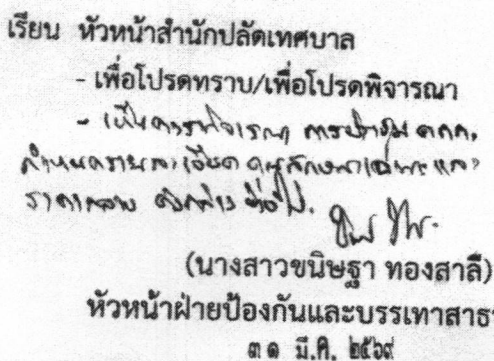 เรียน หัวหน้าสำนักปลัดเทศบาล
- เพื่อโปรดทราบ/เพื่อโปรดพิจารณา
- เห็นควรพิจารณา การประชุม คกก.
กำหนดรายละเอียด คุณลักษณะเฉพาะ และ
ราคากลาง ดังกล่าว ต่อไป.
(นางสาวขนิษฐา ทองสาลี)
หัวหน้าฝ่ายป้องกันและบรรเทาสาธ
๓๑ มี.ค. ๒๕๖๙